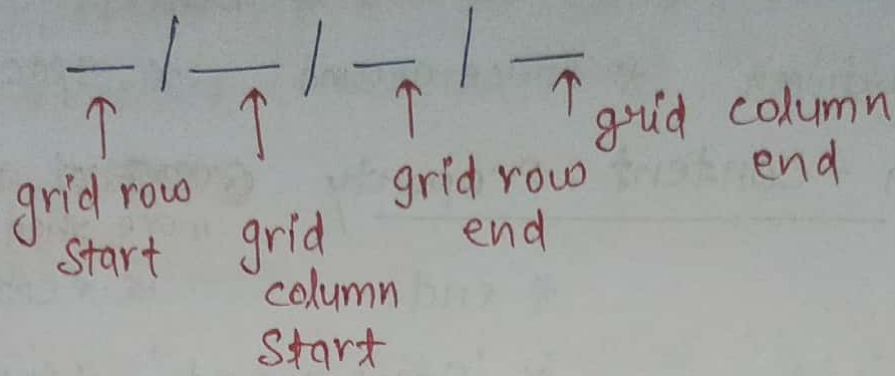 — / — / — / —
grid row
start
grid
column
start
grid row
end
grid column
end